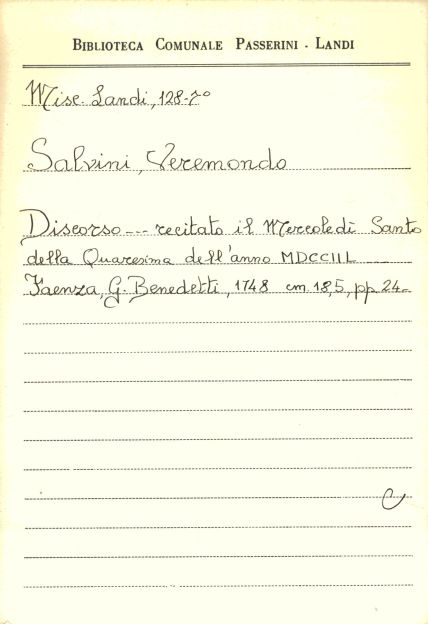 BIBLIOTECA COMUNALE PASSERINI - LANDI
Misc. Landi, 128-7°
Salvini, Veremondo
Discorso --- recitato il Mercoledì Santo
della Quaresima dell'anno MDCCIIL ---
Faenza, G. Benedetti, 1748 cm 18,5, pp 24-
C